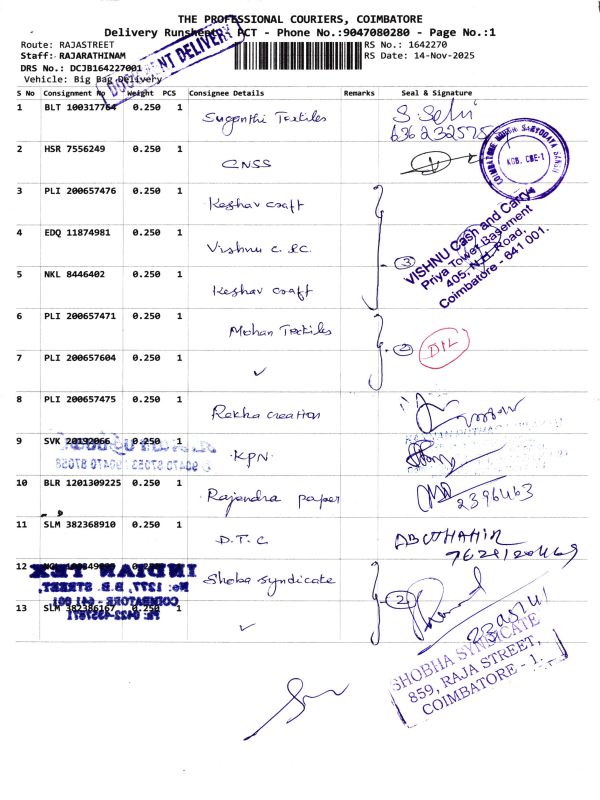 THE PROFESSIONAL COURIERS, COIMBATORE
Delivery Runsheet : PCT - Phone No.:9047080280 - Page No.:1
Route: RAJASTREET
RS No.: 1642270
Staff: RAJARATHINAM
RS Date: 14-Nov-2025
DRS No.: DCJB164227001
Vehicle: Big Bag Delivery
DOCUMENT DELIVERY
S No Consignment No Weight PCS Consignee Details Remarks Seal & Signature
1 BLT 100317764 0.250 1 Suganthi Textiles S. Selvi
2 HSR 7556249 0.250 1 CNSS
KCB. CBE-1
3 PLI 200657476 0.250 1 Keshav craft
4 EDQ 11874981 0.250 1 Vishnu C &C. 3
VISHNU Cash and Carry
Priya Tower Basement
405, N.H. Road,
Coimbatore - 641 001.
5 NKL 8446402 0.250 1 Keshav craft
6 PLI 200657471 0.250 1 Mohan Textiles 2 DIL
7 PLI 200657604 0.250 1 ✓
8 PLI 200657475 0.250 1 Rekha creation
9 SVK 20192066 0.250 1 KPN
10 BLR 1201309225 0.250 1 Rajendra paper 2396463
11 SLM 382368910 0.250 1 D.T.C
12 0.250 1 Shoba Syndicate 2
INDIAN TEX
No: 1277, B.B. STREET,
COIMBATORE - 641 001
13 SLM 382386167 0.250 1 ✓
SHOBHA SYNDICATE
859, RAJA STREET,
COIMBATORE - 1.